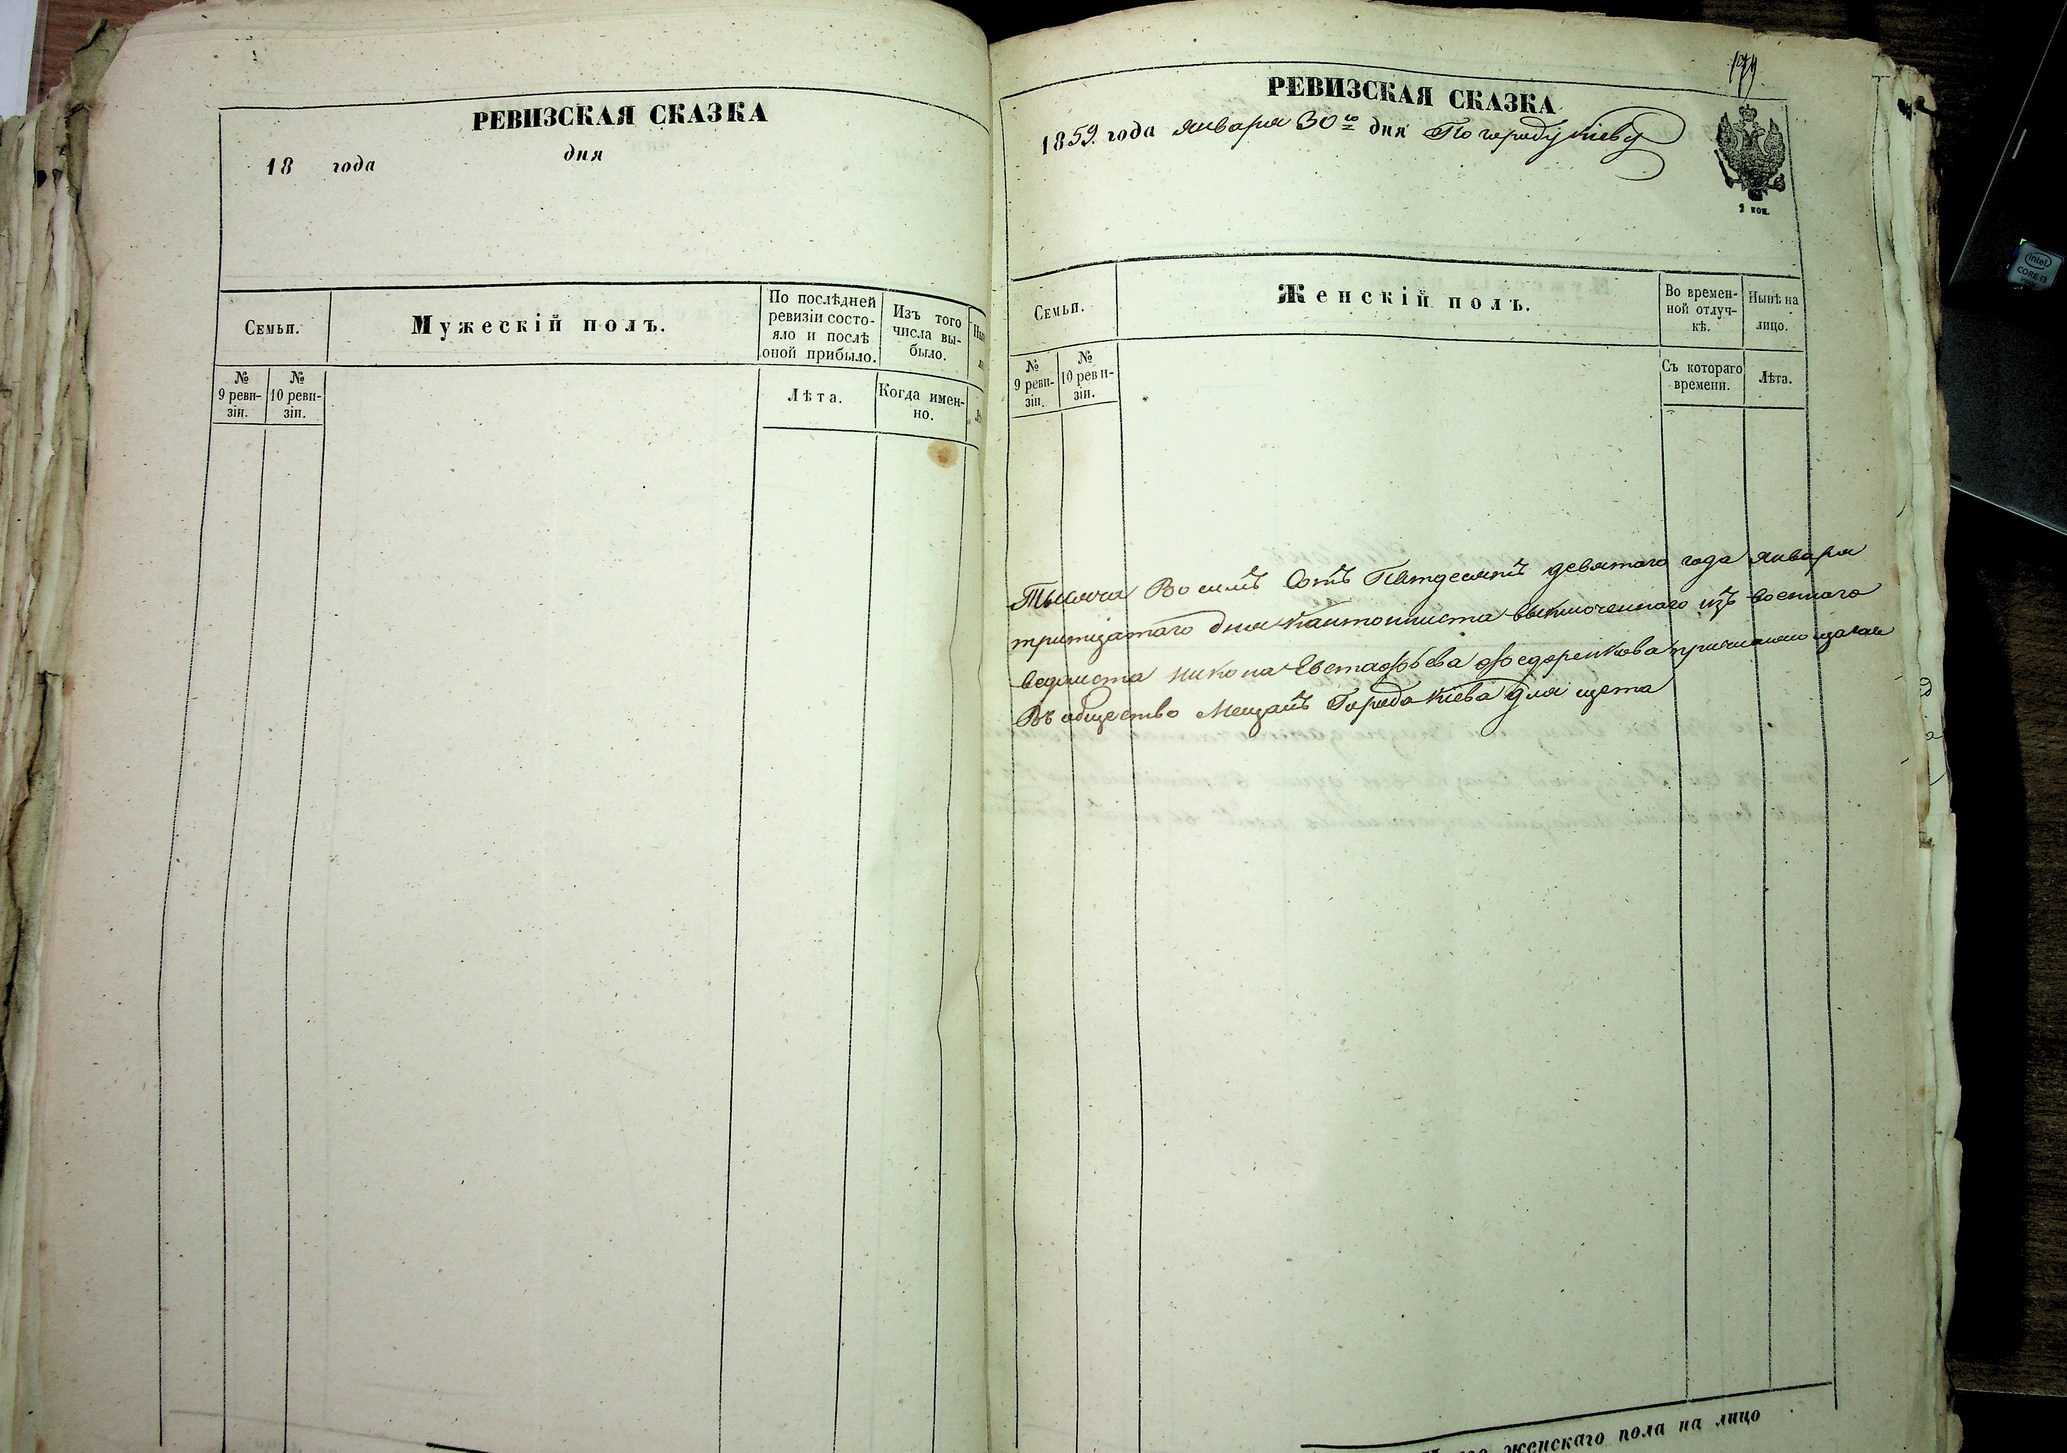 РЕВИЗСКАЯ СКАЗКА
18 года дня
Семьи.
Мужескій полъ.
По послѣдней
ревизіи состо-
яло и послѣ
оной прибыло.
Изъ того
числа вы-
было.
№
9 реви-
зіи.
№
10 реви-
зіи.
Лѣта.
Когда имен-
но.
РЕВИЗСКАЯ СКАЗКА
1859. года января 30го дня По городу Кіеву
2 коп.
Семьи.
Женскій полъ.
Во времен-
ной отлуч-
кѣ.
Нынѣ на
лицо.
№
9 реви-
зіи.
№
10 реви-
зіи.
Съ котораго
времени.
Лѣта.
Тысяча Восемъ Сотъ Пятдесятъ девятого года января
тритцатаго дня кантониста выключеннаго изъ военнаго
Никона Евстафьева Федоренкова
Въ общество Мещанъ Города Кіева для щета
женскаго пола на лицо
intel
CORE i3